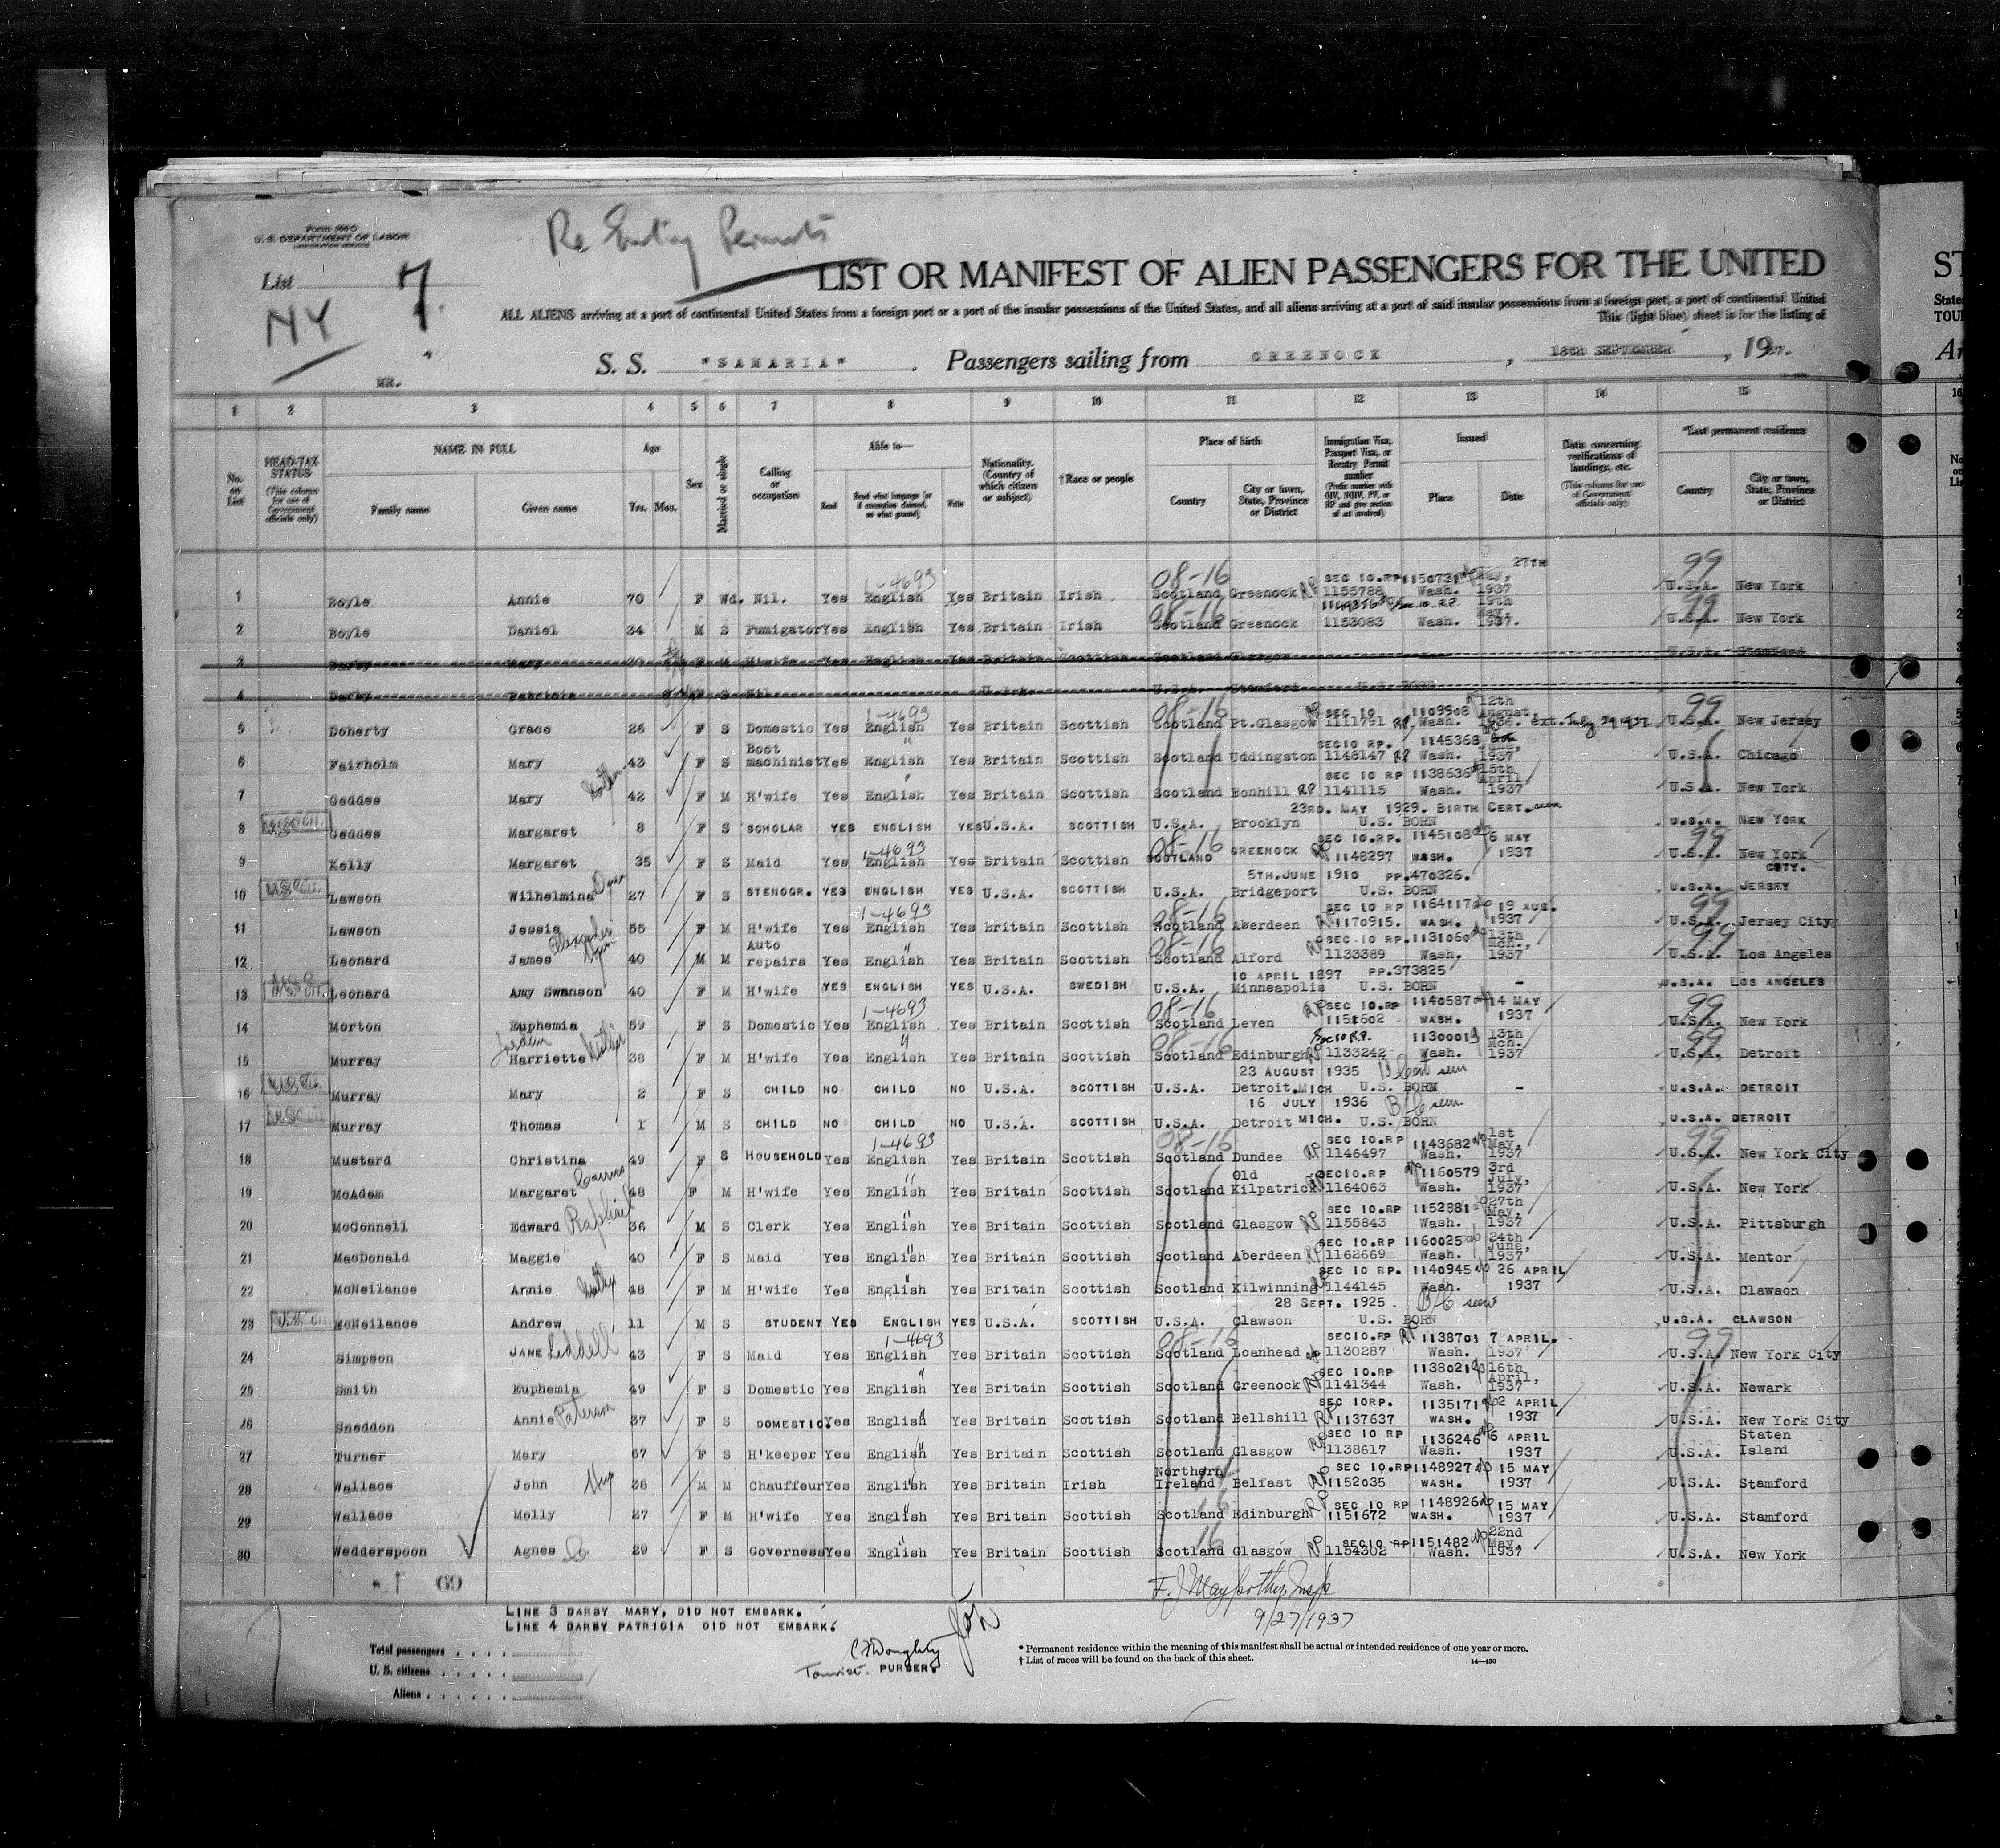 Form 500 C
U. S. DEPARTMENT OF LABOR
IMMIGRATION SERVICE
Re Entry Permits
List 7
NY
LIST OR MANIFEST OF ALIEN PASSENGERS FOR THE UNITED
ALL ALIENS arriving at a port of continental United States from a foreign port or a port of the insular possessions of the United States, and all aliens arriving at a port of said insular possessions from a foreign port, a port of continental United
This (light blue) sheet is for the listing of
S. S. "SAMARIA" . Passengers sailing from GREENOCK , 18th SEPTEMBER , 1937.
MR.
1 2 3 4 5 6 7 8 9 10 11 12 13 14 15
No. on List
HEAD-TAX STATUS (This column for use of Government officials only)
NAME IN FULL Family name Given name
Age Yrs. Mos.
Sex
Married or single
Calling or occupation
Able to— Read Read what language (or if exemption claimed, on what ground) Write
Nationality. (Country of which citizen or subject)
†Race or people
Place of birth Country City or town, State, Province or District
Immigration Visa, Passport Visa, or Reentry Permit number (Prefix number with QIV, NQIV, PV, or RP and give section of act involved)
Issued Place Date
Data concerning verifications of landings, etc. (This column for use of Government officials only)
*Last permanent residence Country City or town, State, Province or District
1 Boyle Annie 70 F Wd. Nil. Yes English 1-4693 Yes Britain Irish Scotland 08-16 Greenock RP SEC 10.RP 1150731 1155788 Wash. 27TH May, 1937 99 U.S.A. New York
2 Boyle Daniel 34 M S Fumigator Yes English Yes Britain Irish Scotland 08-16 Greenock 1153083 Sec 10 RP. Wash. 19th May, 1937. 99 U.S.A. New York
3 Darby Mary F M H'wife Yes English Yes Britain Scottish Scotland Glasgow U.S.A. Stamford
4 Darby Patricia F S Nil. U.S.A. U.S.A. Stamford U.S. BORN
5 Doherty Grace 26 F S Domestic Yes English 1-4693 Yes Britain Scottish Scotland 08-16 Pt.Glasgow RP SEC 10 1109908 1111791 RP. Wash. 12th August, 1936. 99 U.S.A. New Jersey
6 Fairholm Mary 43 F S Boot machinist Yes English " Yes Britain Scottish Scotland Uddingston SEC10 RP. 1145368 1148147 RP Wash. 1937 U.S.A. Chicago
7 Geddes Mary Mother 42 F M H'wife Yes English " Yes Britain Scottish Scotland Bonhill RP SEC 10 RP 1138636 1141115 Wash. 15th April, 1937 U.S.A. New York
8 US CIT. Geddes Margaret 8 F S SCHOLAR YES ENGLISH YES U.S.A. SCOTTISH U.S.A. Brooklyn 23RD. MAY 1929. BIRTH CERT. seen U.S. BORN U.S.A. NEW YORK
9 Kelly Margaret 35 F S Maid Yes English 1-4693 Yes Britain Scottish SCOTLAND 08-16 GREENOCK RP SEC 10.RP. 1145108 1148297 WASH. 6 MAY 1937 99 U.S.A. New York CITY.
10 US CIT. Lawson Wilhelmina 27 F S STENOGR. YES ENGLISH YES U.S.A. SCOTTISH U.S.A. Bridgeport 5TH.JUNE 1910 PP.470326. U.S. BORN U.S.A. JERSEY
11 Lawson Jessie 55 F M H'wife Yes English 1-4693 Yes Britain Scottish Scotland 08-16 Aberdeen RP SEC 10 RP 1164117 1170915. WASH. 19 AUG. 1937 99 U.S.A. Jersey City
12 Leonard James Alexander 40 M M Auto repairs Yes English " Yes Britain Scottish Scotland 08-16 Alford RP SEC 10 RP.1131060 1133389 Wash. 13th Mch., 1937 99 U.S.A. Los Angeles
13 U.S. CIT. Leonard Amy Swanson 40 F M H'wife YES ENGLISH YES U.S.A. SWEDISH U.S.A. Minneapolis 10 APRIL 1897 PP.373825 U.S. BORN - U.S.A. LOS ANGELES
14 Morton Euphemia 59 F S Domestic Yes English 1-4693 Yes Britain Scottish Scotland 08-16 Leven RP SEC 10.RP 1140587 1151602 WASH. 14 MAY 1937 99 U.S.A. New York
15 Murray Jordan Harriette Mother 38 F M H'wife Yes English " Yes Britain Scottish Scotland 08-16 Edinburgh RP Sec 10 R.P. 1130001 1133242 Wash. 13th Mch. 1937 99 U.S.A. Detroit
16 US CIT. Murray Mary 2 F S CHILD NO CHILD NO U.S.A. SCOTTISH U.S.A. Detroit.MICH 23 AUGUST 1935 B Cert seen U.S. BORN - U.S.A. DETROIT
17 US CIT. Murray Thomas 1 M S CHILD NO CHILD NO U.S.A. SCOTTISH U.S.A. Detroit MICH. 16 JULY 1936 B/C seen U.S. BORN U.S.A. DETROIT
18 Mustard Christina 49 F S HOUSEHOLD Yes English 1-4693 Yes Britain Scottish Scotland 08-16 Dundee RP SEC 10.RP 1143682 1146497 Wash. 1st May, 1937 99 U.S.A. New York City
19 McAdam Margaret Cairns 48 F M H'wife Yes English " Yes Britain Scottish Scotland Old Kilpatrick RP SEC10.RP 1160579 1164063 Wash. 3rd July, 1937 U.S.A. New York
20 McConnell Edward Raphael 36 M S Clerk Yes English " Yes Britain Scottish Scotland Glasgow RP SEC 10.RP 1152881 1155843 Wash. 27th May, 1937 U.S.A. Pittsburgh
21 MacDonald Maggie 40 F S Maid Yes English " Yes Britain Scottish Scotland Aberdeen RP SEC 10.RP 1160025 1162669 Wash. 24th June, 1937 U.S.A. Mentor
22 McNeilance Annie Mother 48 F M H'wife Yes English " Yes Britain Scottish Scotland Kilwinning RP SEC 10 RP. 1140945 1144145 Wash. 26 APRIL 1937 U.S.A. Clawson
23 U.S. CIT. McNeilance Andrew 11 M S STUDENT YES ENGLISH YES U.S.A. SCOTTISH U.S.A. Clawson 28 SEPT. 1925. B/C seen U.S. BORN U.S.A. CLAWSON
24 Simpson JANE Liddell 43 F S Maid Yes English 1-4693 Yes Britain Scottish Scotland 08-16 Loanhead RP SEC10.RP 1138701 1130287 Wash. 7 APRIL. 1937 99 U.S.A. New York City
25 Smith Euphemia 49 F S Domestic Yes English " Yes Britain Scottish Scotland Greenock RP SEC 10.RP 1138021 1141344 Wash. 16th April, 1937 U.S.A. Newark
26 Sneddon Annie Paterson 37 F S DOMESTIC Yes English " Yes Britain Scottish Scotland Bellshill RP SEC 10RP. 1135171 1137637 WASH. 02 APRIL 1937 U.S.A. New York City
27 Turner Mary 67 F S H'keeper Yes English " Yes Britain Scottish Scotland Glasgow RP SEC 10 RP 1136246 1138617 Wash. 6 APRIL 1937 U.S.A. Staten Island
28 Wallace John 36 M M Chauffeur Yes English " Yes Britain Irish Northern Ireland Belfast RP SEC 10.RP 1148927 1152035 WASH. 15 MAY 1937 U.S.A. Stamford
29 Wallace Molly 27 F M H'wife Yes English " Yes Britain Scottish Scotland 16 Edinburgh RP SEC 10 RP 1148926 1151672 WASH. 15 MAY 1937 U.S.A. Stamford
30 Wedderspoon Agnes C 29 F S Governess Yes English Yes Britain Scottish Scotland 16 Glasgow RP SEC10 RP 1151482 1154302 Wash. 22nd May, 1937 U.S.A. New York
69
9/27/1937
LINE 3 DARBY MARY, DID NOT EMBARK.
LINE 4 DARBY PATRICIA DID NOT EMBARK.
Total passengers . . . .
U. S. citizens . . . . .
Aliens . . . . . .
Tourist. PURSER.
* Permanent residence within the meaning of this manifest shall be actual or intended residence of one year or more.
† List of races will be found on the back of this sheet.
14—430